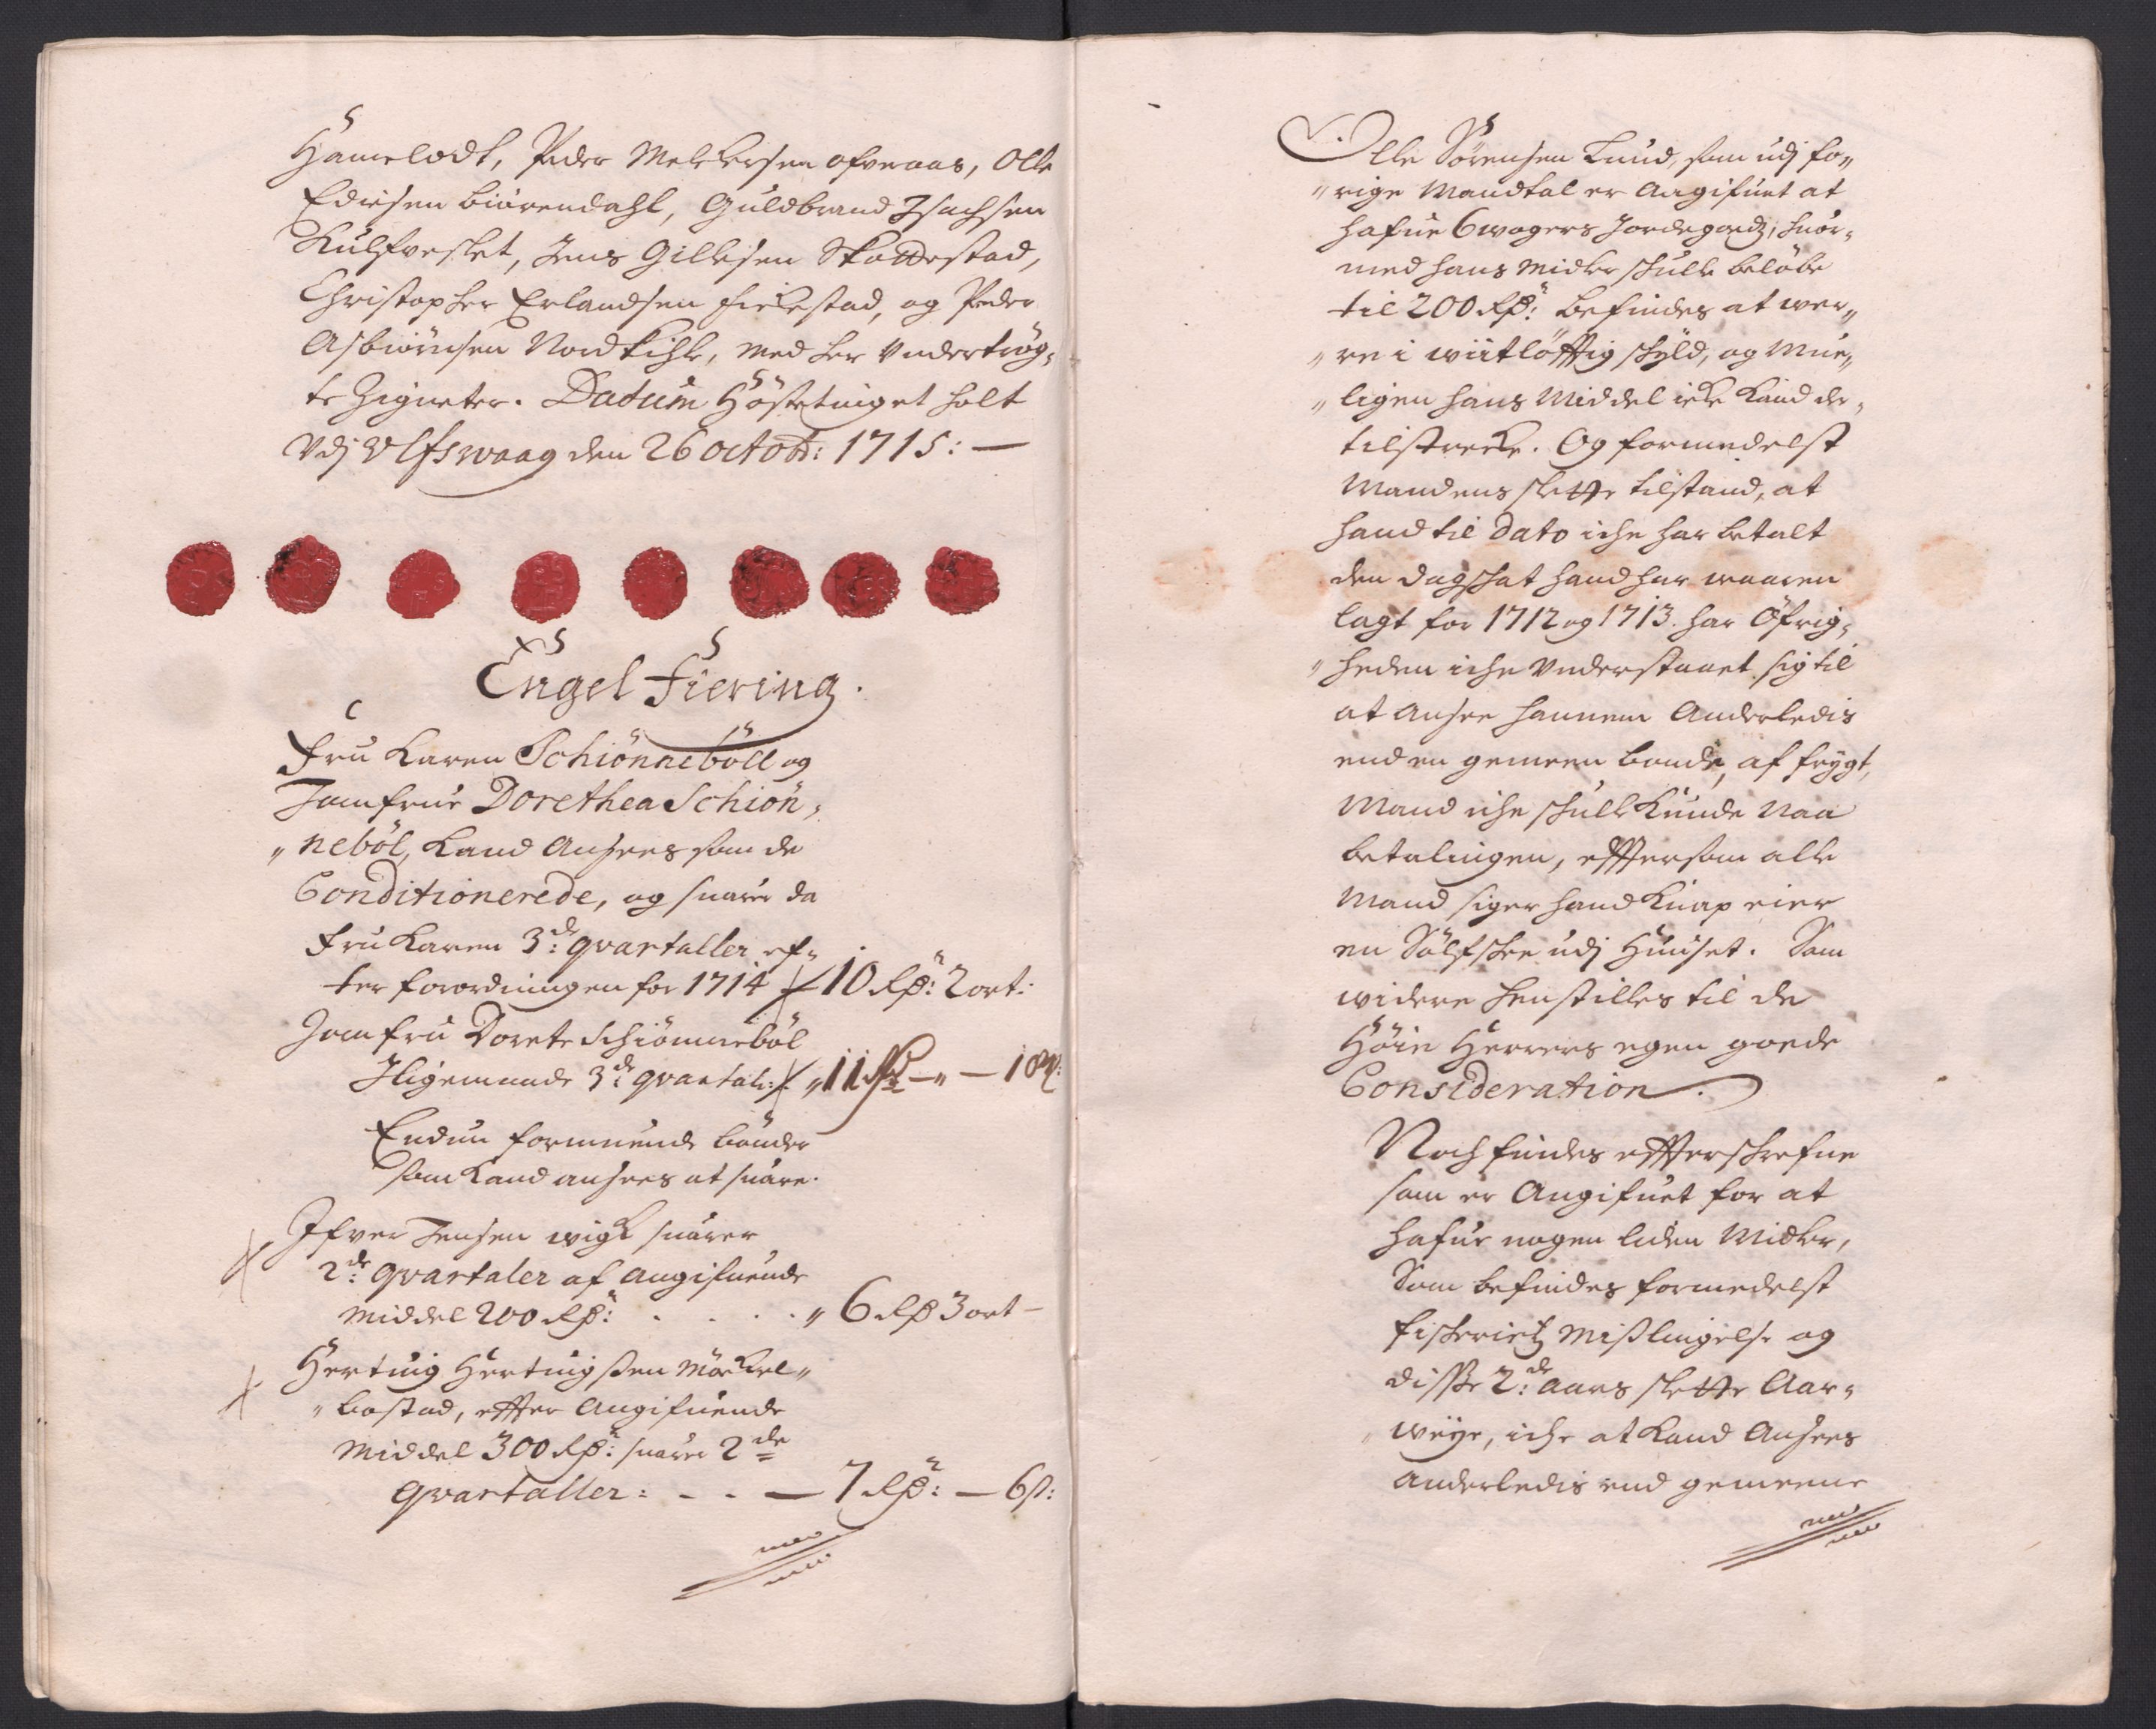 Hameløᴅt, Peder Melchersen ofvenaas, Olle
Edisen Biörendahl, Guldbrand Isachsen
Kulfveslet, Jens Gillesen Skottestad,
Christopher Erlandsen fierestad, og Peder
Asbiörnsen Nordkihl, med her undertrög„
te Zigneter. Datum Höstetinget holt
Udj Ulfswaag den 26 octob: 1715: —
Engel Fiering.
Fru Karen Schiönneböll og
Jomfrue Dorethea Schiön„
„neböl, Kand Ansees som de
Conditionerede, og suarer da
Fru Karen 3de: qvartaller ef„
ter forordningen for 1714 10 Rd: 2 ort:
Jomfru Dorete Schiönneböl
Iligemaade 3de qvartal: „11 Rd — „ — 10 s:
Endnu formuende bönder
som Kand ansees at suare.
Ifver Jensen wigh suarer
2de: qvartaler af angifuende
Middel 200 Rd: . . . . „ 6 Rd 3 ort —
Hertuig Hertuigssen Mörkel„
„bostad, effter Angifuende
Middel 300 Rd: suarer 2de
qvartaller: - - — 7 Rd: — 6 s:
Olle Sörensen Lund, som udj for„
„rige Mandtal er Angifuet at
hafue 6 wogers Jordegodz, huor„
med hans Midler skulle beløbe
til 200 Rd: befindes at wer„
„re i wiitløfftig skyld, og Mue„
„ligen hans Middel icke Kand der„
tilstrecke. Og formedelst
Mandens slette tilstand, at
hand til dato iche har betalt
den dagskat hand har waaren
lagt for 1712 og 1713. har Öfrig„
„heden iche understaaet sig til
at ansee hannem Anderledis
end en gemeen bonde, af frygt,
Mand iche skulle Kunde Naa
betalingen, effttersom alle
Mand siger hand Knap eier
en Sölfskee udj Huuset. Som
widere henstilles til de
Höie Herrers egen goede
Consideration.
Noch findes effterskrefne
som er Angifuet for at
hafue nogen liden Midler,
Som befindes formedelst
fiskeriets Mißlingelse og
disse 2de: Aars slette Aar„
„weye, iche at Kand Ansees
Anderledis end gemeene